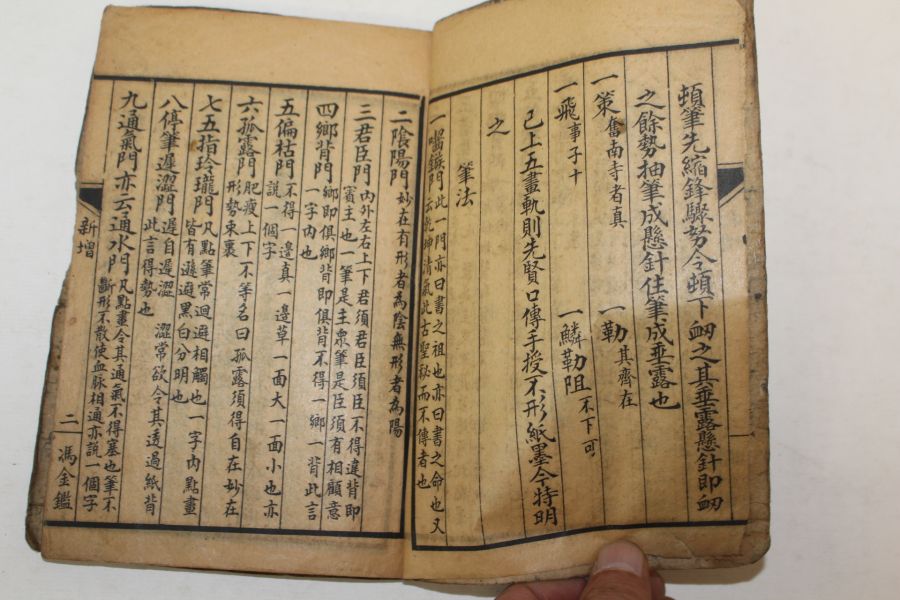 頓筆先縮鋒驟努令頓下衂之其垂露懸針即衂
之餘勢抽筆成懸針住筆成垂露也
一策奮南寺者真 一勒其齊在
一飛事子十 一鱗勒阻不下可
已上五畫軌則先賢口傳手授不形紙墨今特明
之
筆法
門此一門亦曰書之祖也亦曰書之命也又
云乾坤清氣此古聖秘而不傳者也
二陰陽門妙在有形者為陰無形者為陽
三君臣門內外左右上下君須君臣須臣不得違背即
賓主也一筆是主衆筆是臣須有相顧意
四鄉背門鄉即俱鄉背即俱背不得一鄉一背此言
一字內也
五偏枯門不得一邊真一邊草一面大一面小也亦
說一個字
六孤露門肥瘦上下不等名曰孤露須得自在妙在
形勢束裹
七五指玲瓏門凡點筆常迴避相觸也一字內點畫
皆有遞避黑白分明也
八停筆遲澀門遲自遲澀澀常欲令其透過紙背
此言得勢也
九通氣門亦云通水門凡點畫令其通氣不得塞也筆不
斷形不散使血脉相通亦說一個字
新增
二
馮金鑑